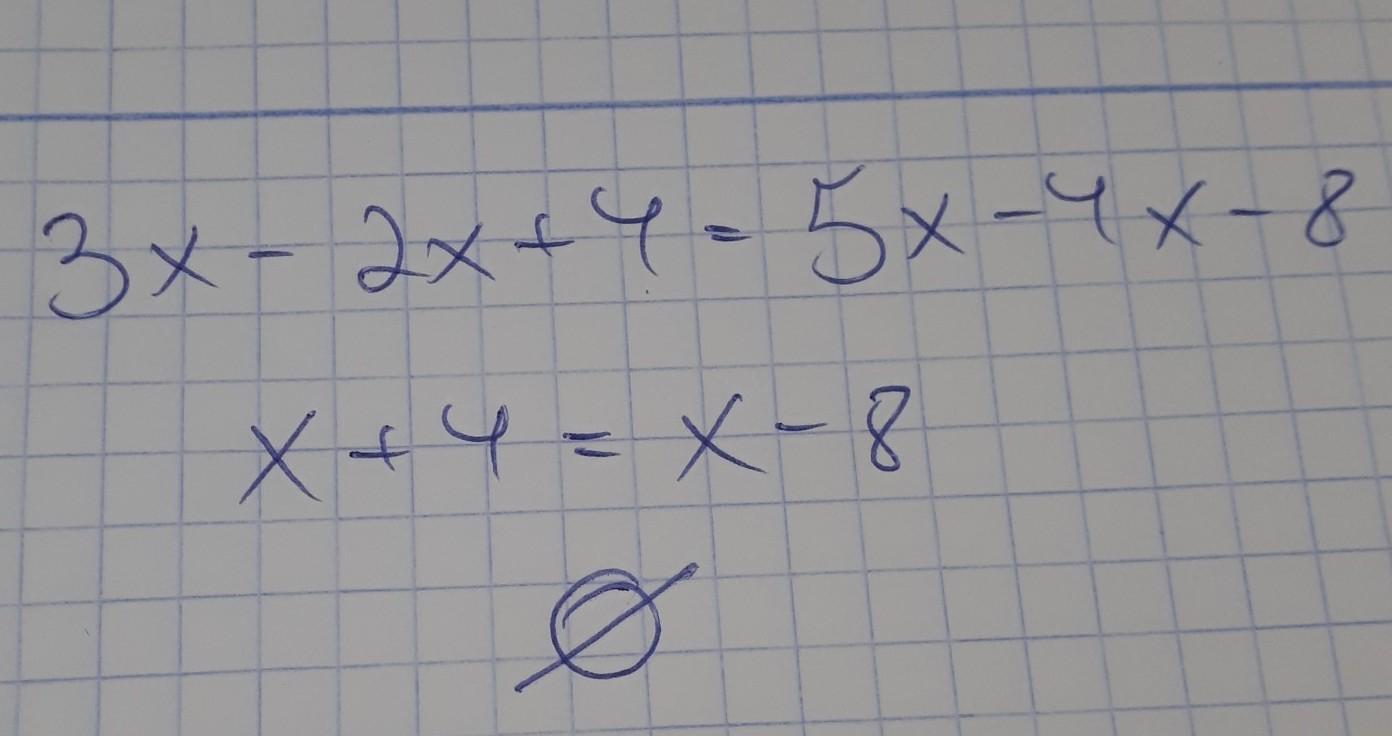 3x - 2x + 4 = 5x - 4x - 8
x + 4 = x - 8
∅